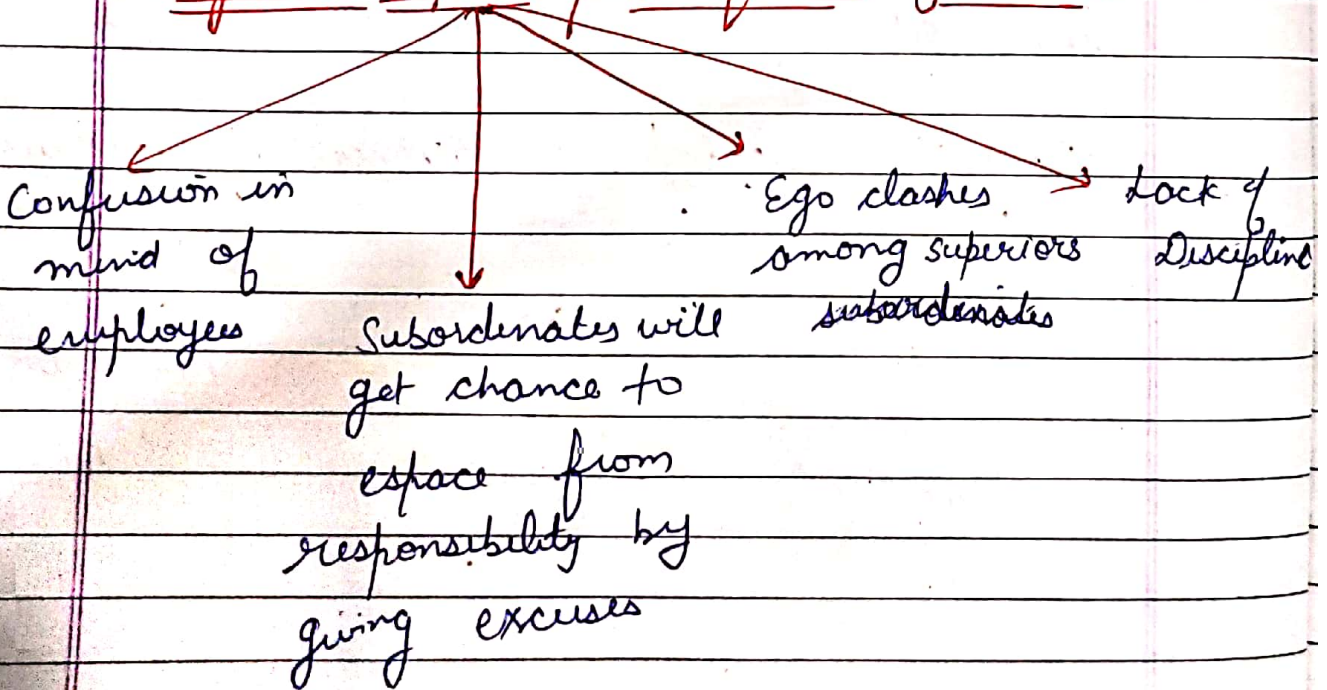 Confusion in
mind of
employees
Subordinates will
get chance to
espace from
responsibility by
giving excuses
Ego clashes
among superiors
subordinates
Lack of
Discipline